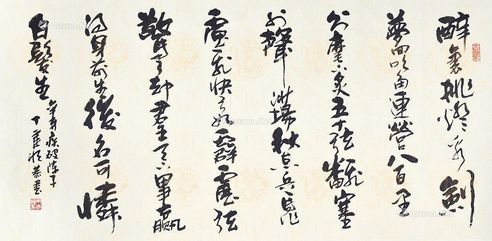 醉裏挑燈看劍
夢回吹角連營八百里
分麾下炙五十弦翻塞
外聲沙場秋點兵馬作的
盧飛快弓如霹靂弦
驚了卻君王天下事贏
得身前生後名可憐
白髮生
辛弃疾破陣子